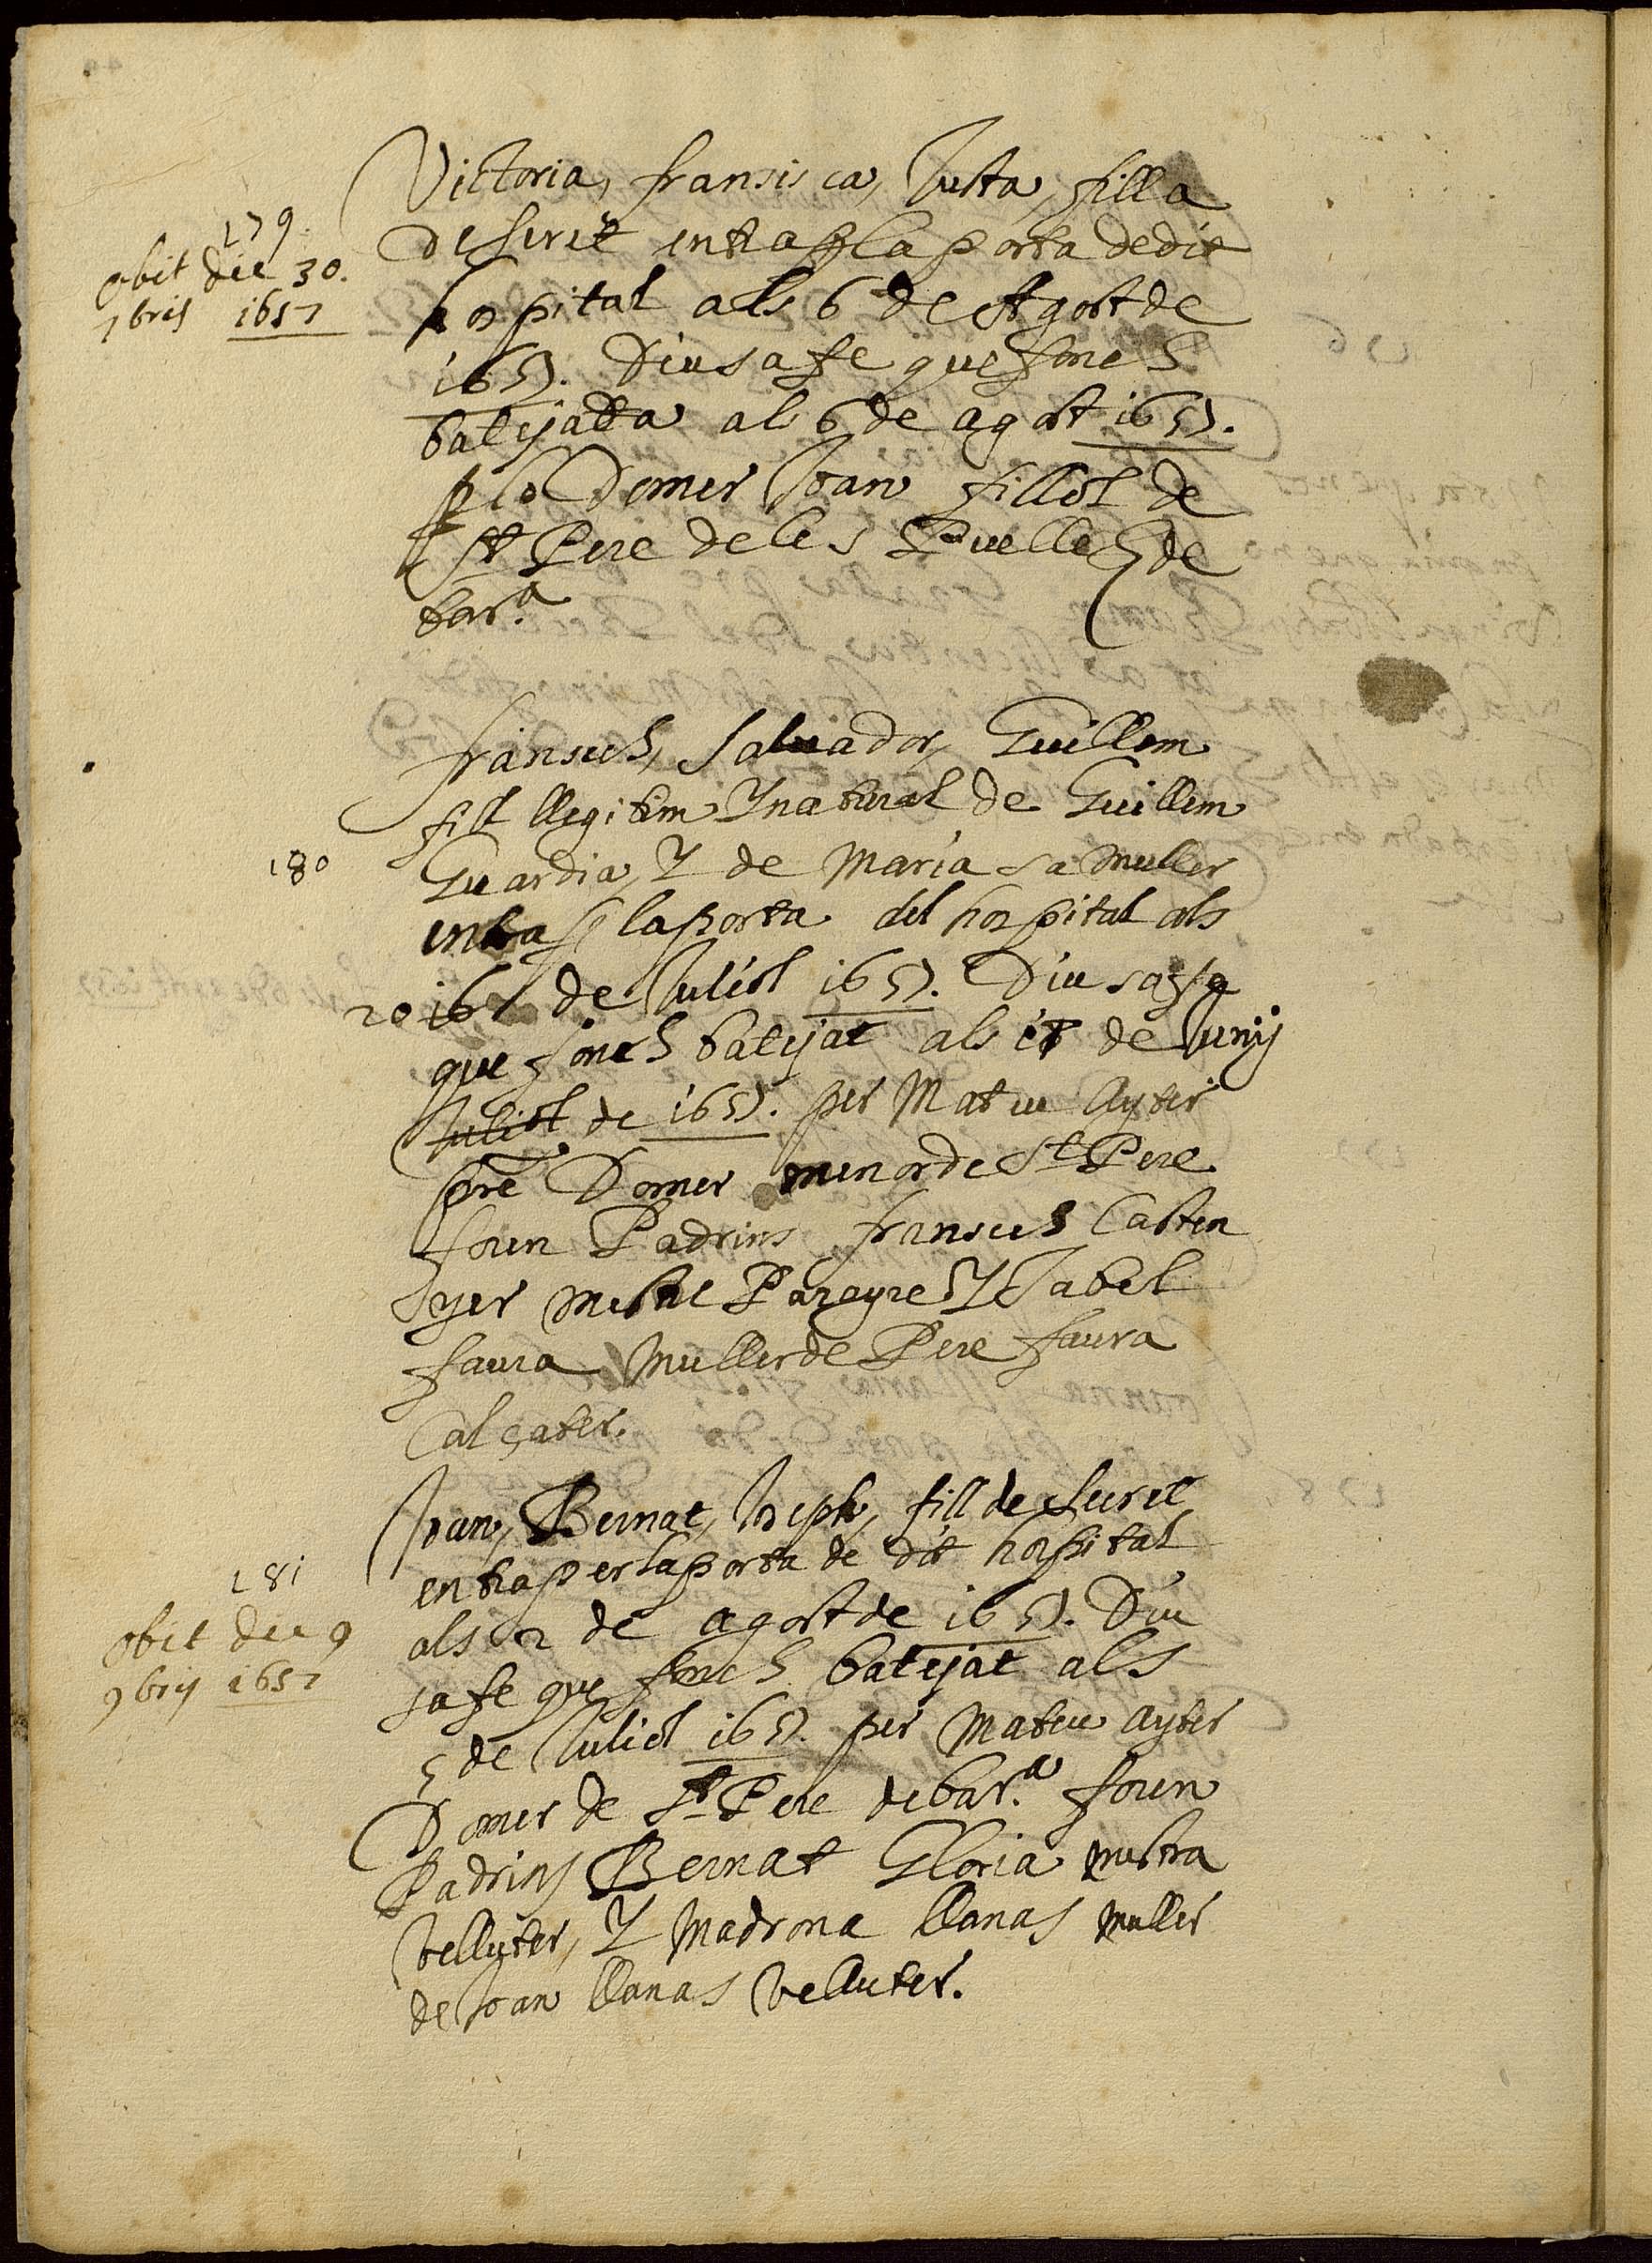 179
obit die 30.
7bris 1657
Victoria, fransisca, Justa, filla
de secret entra p la porta de dit
hospital als 6 de Agost de
1657. Diu sa fe que fonch
batejada al 6 de agost 1657.
p lo Domer Joan fillol de
St Pere de les Puelles de
bar.a
180
fransech, Salvador, Guillem
fill llegitim Y natural de Guillem
Guardia, Y de Maria sa muller
entra p la porta del hospital als
20 de Juliol 1657. Diu sa fe
que fonch batejat als de Juny
Juliol de 1657. per Mateu Ayter
pre Domer menor de St Pere
foren Padrins fransech Casten
yer mestre Parayre Y Isabel
faura muller de Pere faura
Calçater.
181
obit die 9
9brij 1657
Joan, Bernat, Joseph, fill de secret
entra per la porta de dit hospital
als 2 de agost de 1657. Diu
sa fe que fonch batejat als
5 de Juliol 1657. per Mateu Ayter
Domer de St Pere de bar.a foren
Padrins Bernat Gloria mestra
velluter, Y Madrona llanas muller
de Joan llanas velluter.